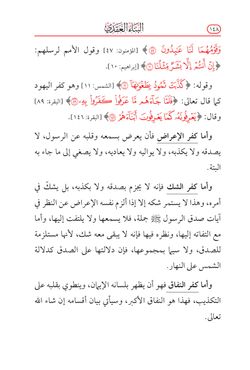 ١٤٨
البناء العقدي
وَقَوْمُهُمَا لَنَا عَابِدُونَ ﴾ [المؤمنون: ٤٧] وقول الأمم لرسلهم:
﴿ إِنْ أَنتُمْ إِلَّا بَشَرٌ مِّثْلُنَا ﴾ [إبراهيم: ١٠].
وقوله: ﴿ كَذَّبَتْ ثَمُودُ بِطَغْوَاهَا ﴾ [الشمس: ١١] وهو كفر اليهود
كما قال تعالى: ﴿ فَلَمَّا جَاءَهُم مَّا عَرَفُوا كَفَرُوا بِهِ ﴾ [البقرة: ٨٩]
﴿ يَعْرِفُونَهُ كَمَا يَعْرِفُونَ أَبْنَاءَهُمْ ﴾ [البقرة: ١٤٦].
وأما كفر الإعراض فأن يعرض بسمعه وقلبه عن الرسول، لا
يصدقه ولا يكذبه، ولا يواليه ولا يعاديه، ولا يصغي إلى ما جاء به
البتة.
وأما كفر الشك فإنه لا يجزم بصدقه ولا يكذبه، بل يشكّ في
أمره، وهذا لا يستمر شكه إلا إذا ألزم نفسه الإعراض عن النظر في
آيات صدق الرسول ﷺ جملة، فلا يسمعها ولا يلتفت إليها، وأما
مع التفاته إليها، ونظره فيها فإنه لا يبقى معه شك، لأنها مستلزمة
للصدق، ولا سيما بمجموعها، فإن دلالتها على الصدق كدلالة
الشمس على النهار.
وأما كفر النفاق فهو أن يظهر بلسانه الإيمان، وينطوي بقلبه على
التكذيب، فهذا هو النفاق الأكبر، وسيأتي بيان أقسامه إن شاء الله
تعالى.